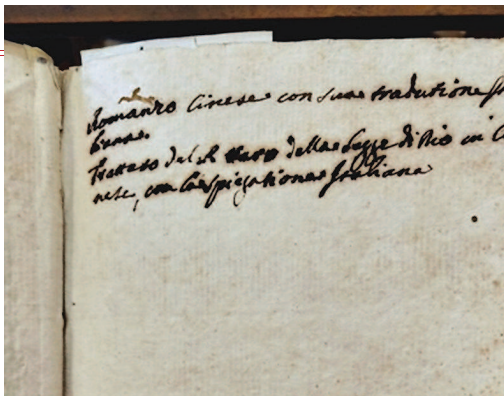 Romanzo Cinese con sua tradutione
Trattato del vero della Legge di Dio in
nese, con la spiegatione Italiana